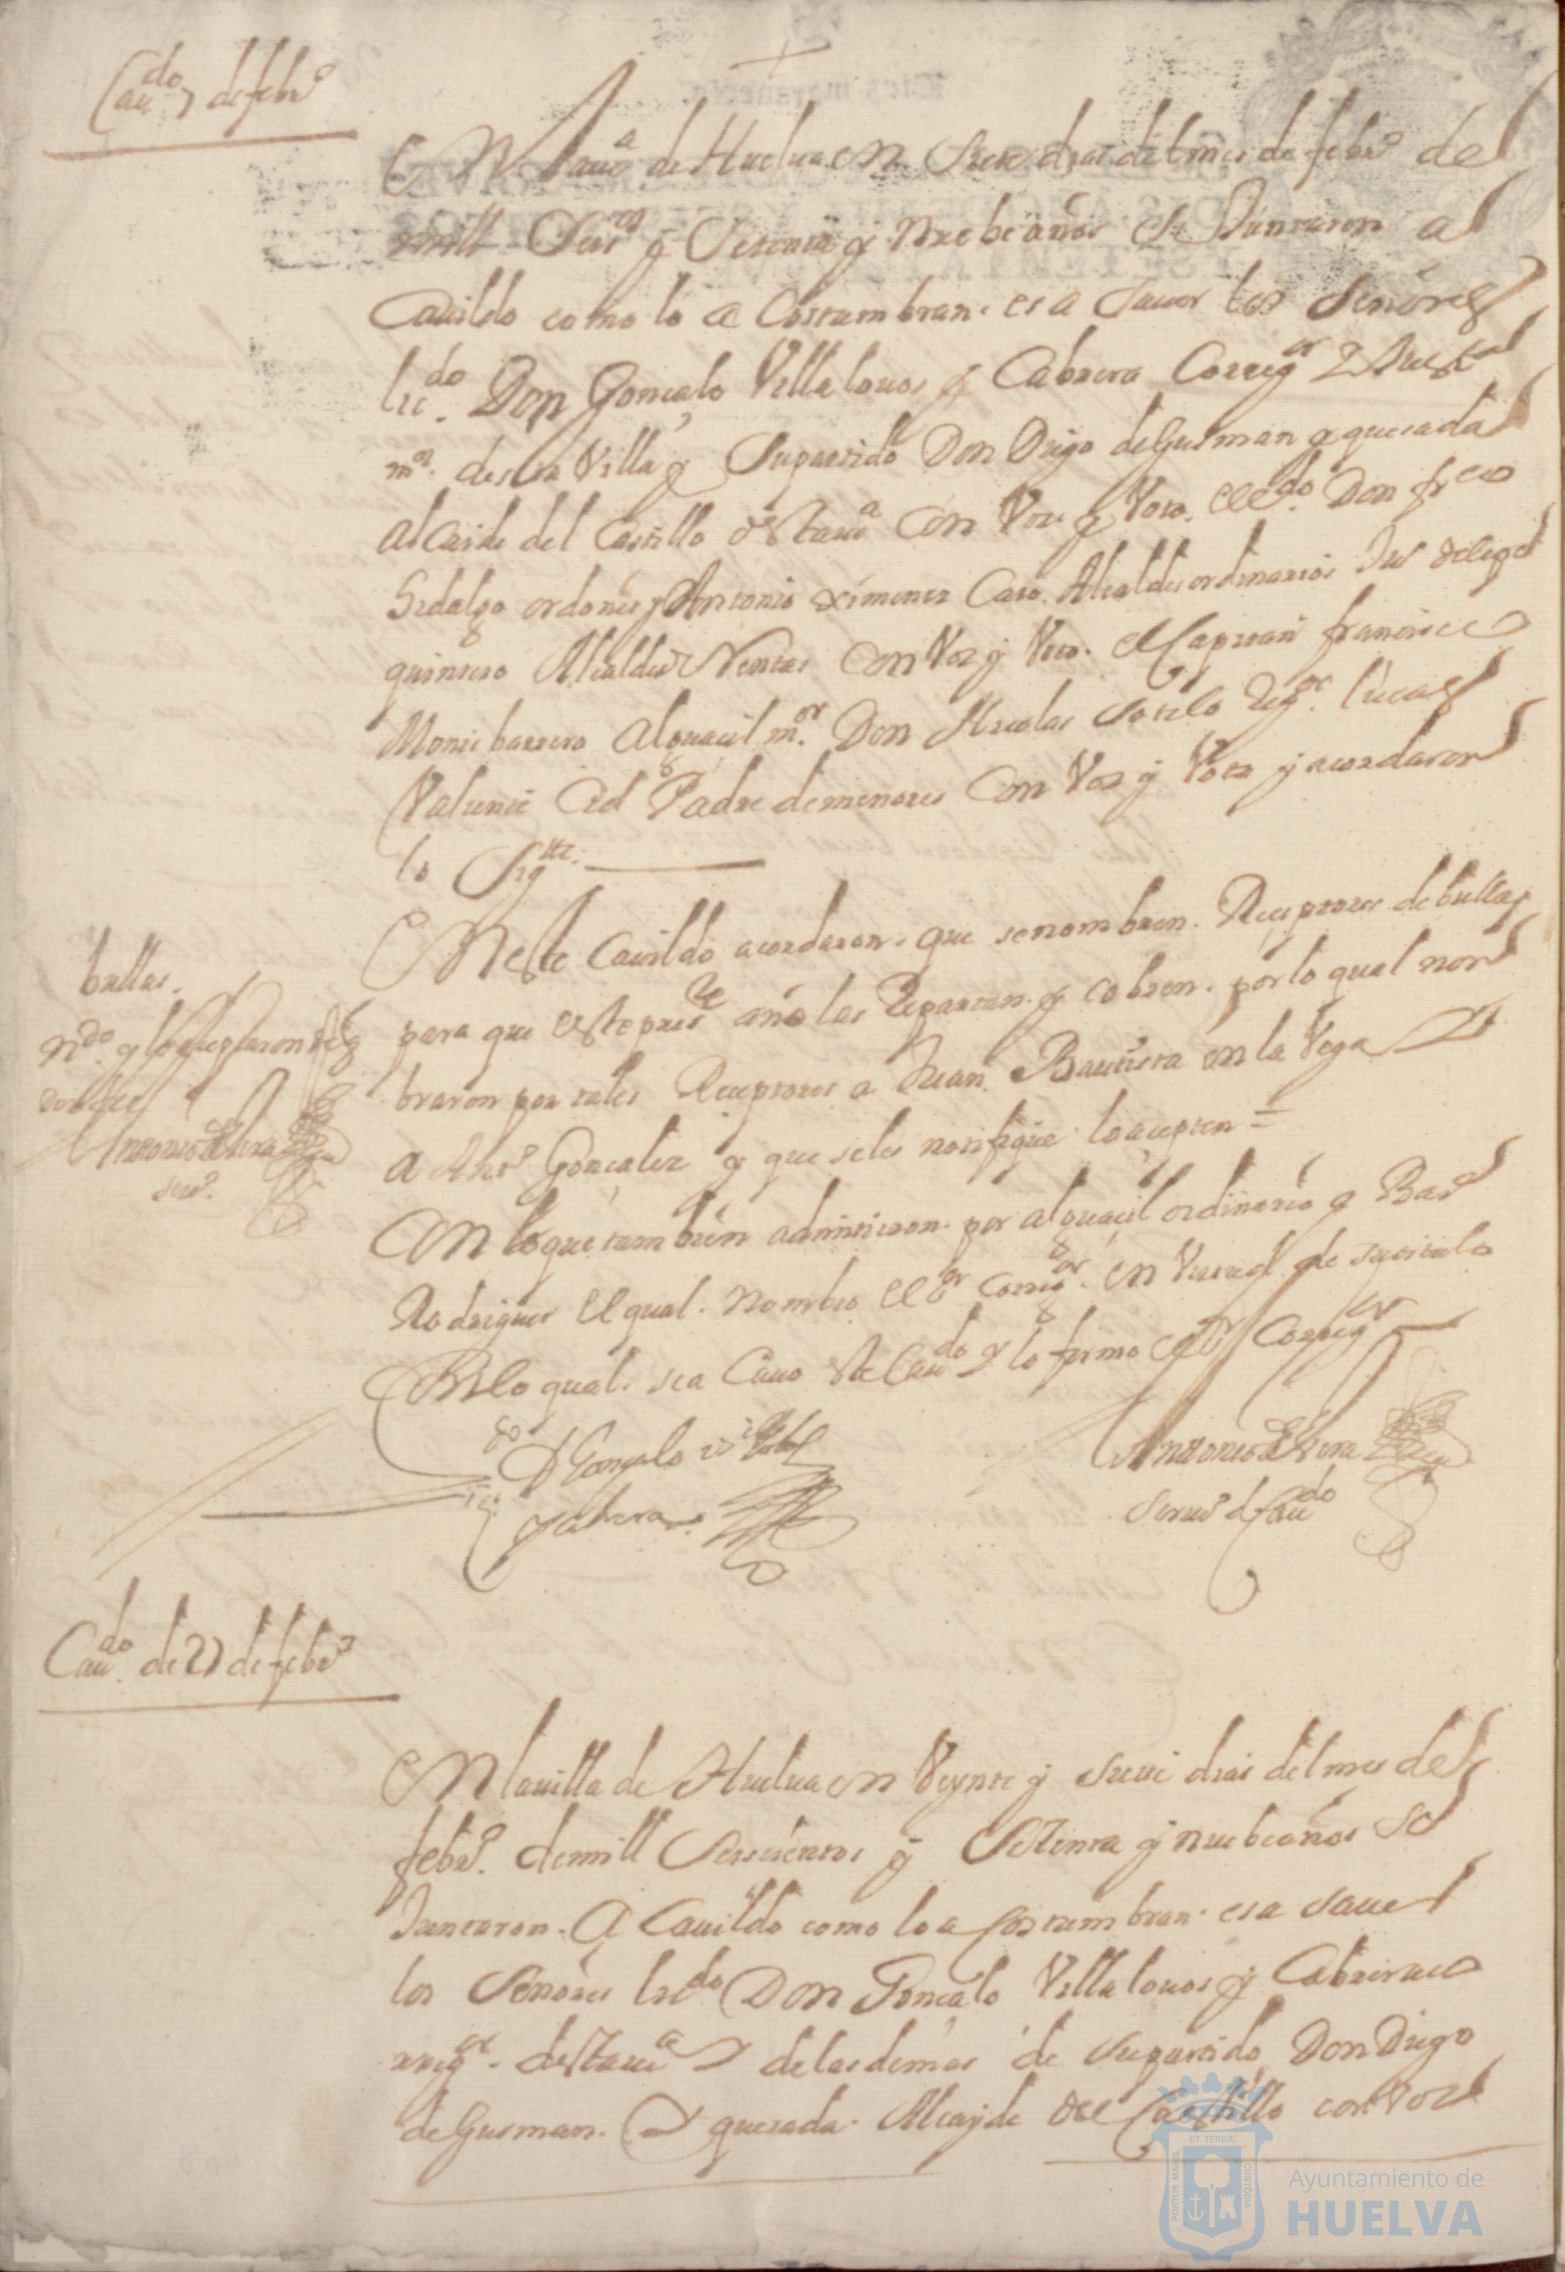 Cau.do 7 de febro
En la uia de Huelua en Siete dias del mes de febro de
mill Seisos y Setenta y Nuebe años Se Juntaron a
Cauildo como lo a Costumbran. es a Sauer los Señores
licdo. Don Gonçalo Villalouos y Cabrera Corregor y Justa
mor. desta Villa y Supartido Don Diego de Gusman y quesada
alcaide del Castillo destauia con Voz y Voto. el ldo. Don frco
hidalgo ordoñes y Antonio ximenez Caro. Alcaldes ordinarios
quintero Alcalde Con Voz y Voto. el Capitan francisco
Monte barrero alguacil mor. Don Nicolas Sotelo Regor. lucas
Valiente Cid Padre de menores con Voz y Voto y acordaron
lo Sigte.
bullas.
Ndo. y lo açeptaron
doy fee
Antonio de Vera
scrio.
En este Cauildo acordaron. que se nombren. Reçeptores de bullas
para que este preste año las Repartan. y cobren. por lo qual nom
braron por tales Reçeptores a Juan Bauptista en la Vega y
a Anto Gonçalez y que se les notifique lo açepten =
Con lo que tambien admitieron. por alguaçil ordinario a Bar
Rodrigues el qual. nombro el Sor Corregor. en Virtud de su titulo
En lo qual. se a Cauo este Caudo y lo firmo el Sor Corregor
do D Gonçalo Villalobos
y Cabrera
Antonio de Vera
Scriuo d Caudo
Caudo. de 27 de febro
En la uilla de Huelua en Veynte y Siete dias del mes de
febro. de mill Seiscientos y Setenta y nuebe años Se
Juntaron. A Cauildo como lo a Costumbran. es a Sauer
los Señores licdo Don Gonçalo Villalouos y Cabrera co
rregor. destauia y de las demas de Supartido Don Diego
de Gusman. y quesada. Alcayde del Castillo con Voz
PORTUS MARIS
ET TERRÆ
CUSTODIA
Ayuntamiento de
HUELVA